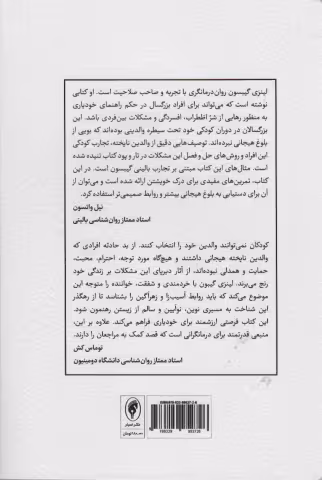 لینزی گیبسون روان‌درمانگری با تجربه و صاحب صلاحیت است. او کتابی
نوشته است که می‌تواند برای افراد بزرگسال در حکم راهنمای خودیاری
به منظور رهایی از شرّ اظطراب، افسردگی و مشکلات بین‌فردی باشد. این
بزرگسالان در دوران کودکی خود تحت سیطره والدینی بوده‌اند که بویی از
بلوغ هیجانی نبرده‌اند. توصیف‌هایی دقیق از والدین ناپخته، تجارب کودکی
این افراد و روش‌های حل و فصل این مشکلات در تار و پود کتاب تنیده شده
است. مثال‌های این کتاب مبتنی بر تجارب بالینی گیبسون است. در این
کتاب، تمرین‌های مفیدی برای درک خویشتن ارائه شده است و می‌توان از
آن برای دستیابی به بلوغ هیجانی بیشتر و روابط صمیمی‌تر استفاده کرد.
نیل واتسون
استاد ممتاز روان‌شناسی بالینی
کودکان نمی‌توانند والدین خود را انتخاب کنند. از بد حادثه افرادی که
والدین ناپخته هیجانی داشتند و هیچ‌گاه مورد توجه، احترام، محبت،
حمایت و همدلی نبوده‌اند، از آثار دیرپای این مشکلات بر زندگی خود
رنج می‌برند. لینزی گیبون با خردمندی و شفقت، خواننده را متوجه این
موضوع می‌کند که باید روابط آسیب‌زا و زهرآگین را بشناسد تا از رهگذر
این شناخت به مسیری نوین، نوآیین و سالم از زیستن رهنمون شود.
این کتاب فرصتی ارزشمند برای خودیاری فراهم می‌کند. علاوه بر این،
منبعی قدرتمند برای درمانگرانی است که قصد کمک به مراجعان را دارند.
توماس کش
استاد ممتاز روان‌شناسی دانشگاه دومینیون